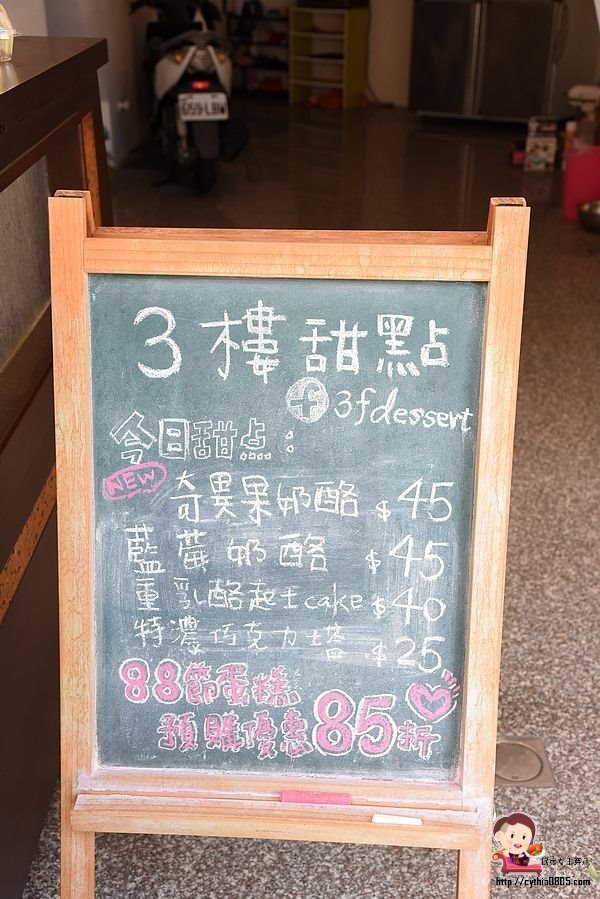 3樓甜點
f 3fdessert
今日甜点:
NEW 奇異果奶酪 $45
藍莓奶酪 $45
重乳酪起士cake $40
特濃巧克力塔 $25
88節蛋糕
預購優惠85折
http://cythia0805.com